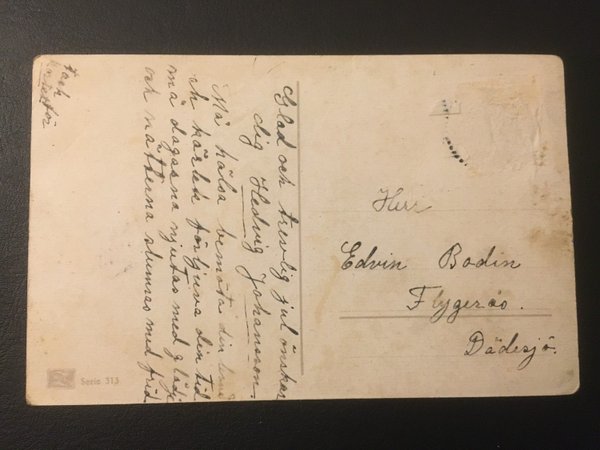 Glad och trevlig jul önskar
dig Hedvig Johansson.
Må hälsa bemöta din
och kärlek förljuva din tid
må dagarna njutas med glädje
och nätterna slumras med frid
tack
Herr
Edvin Bodin
Flygeräs.
Dädesjö.
Serie 313